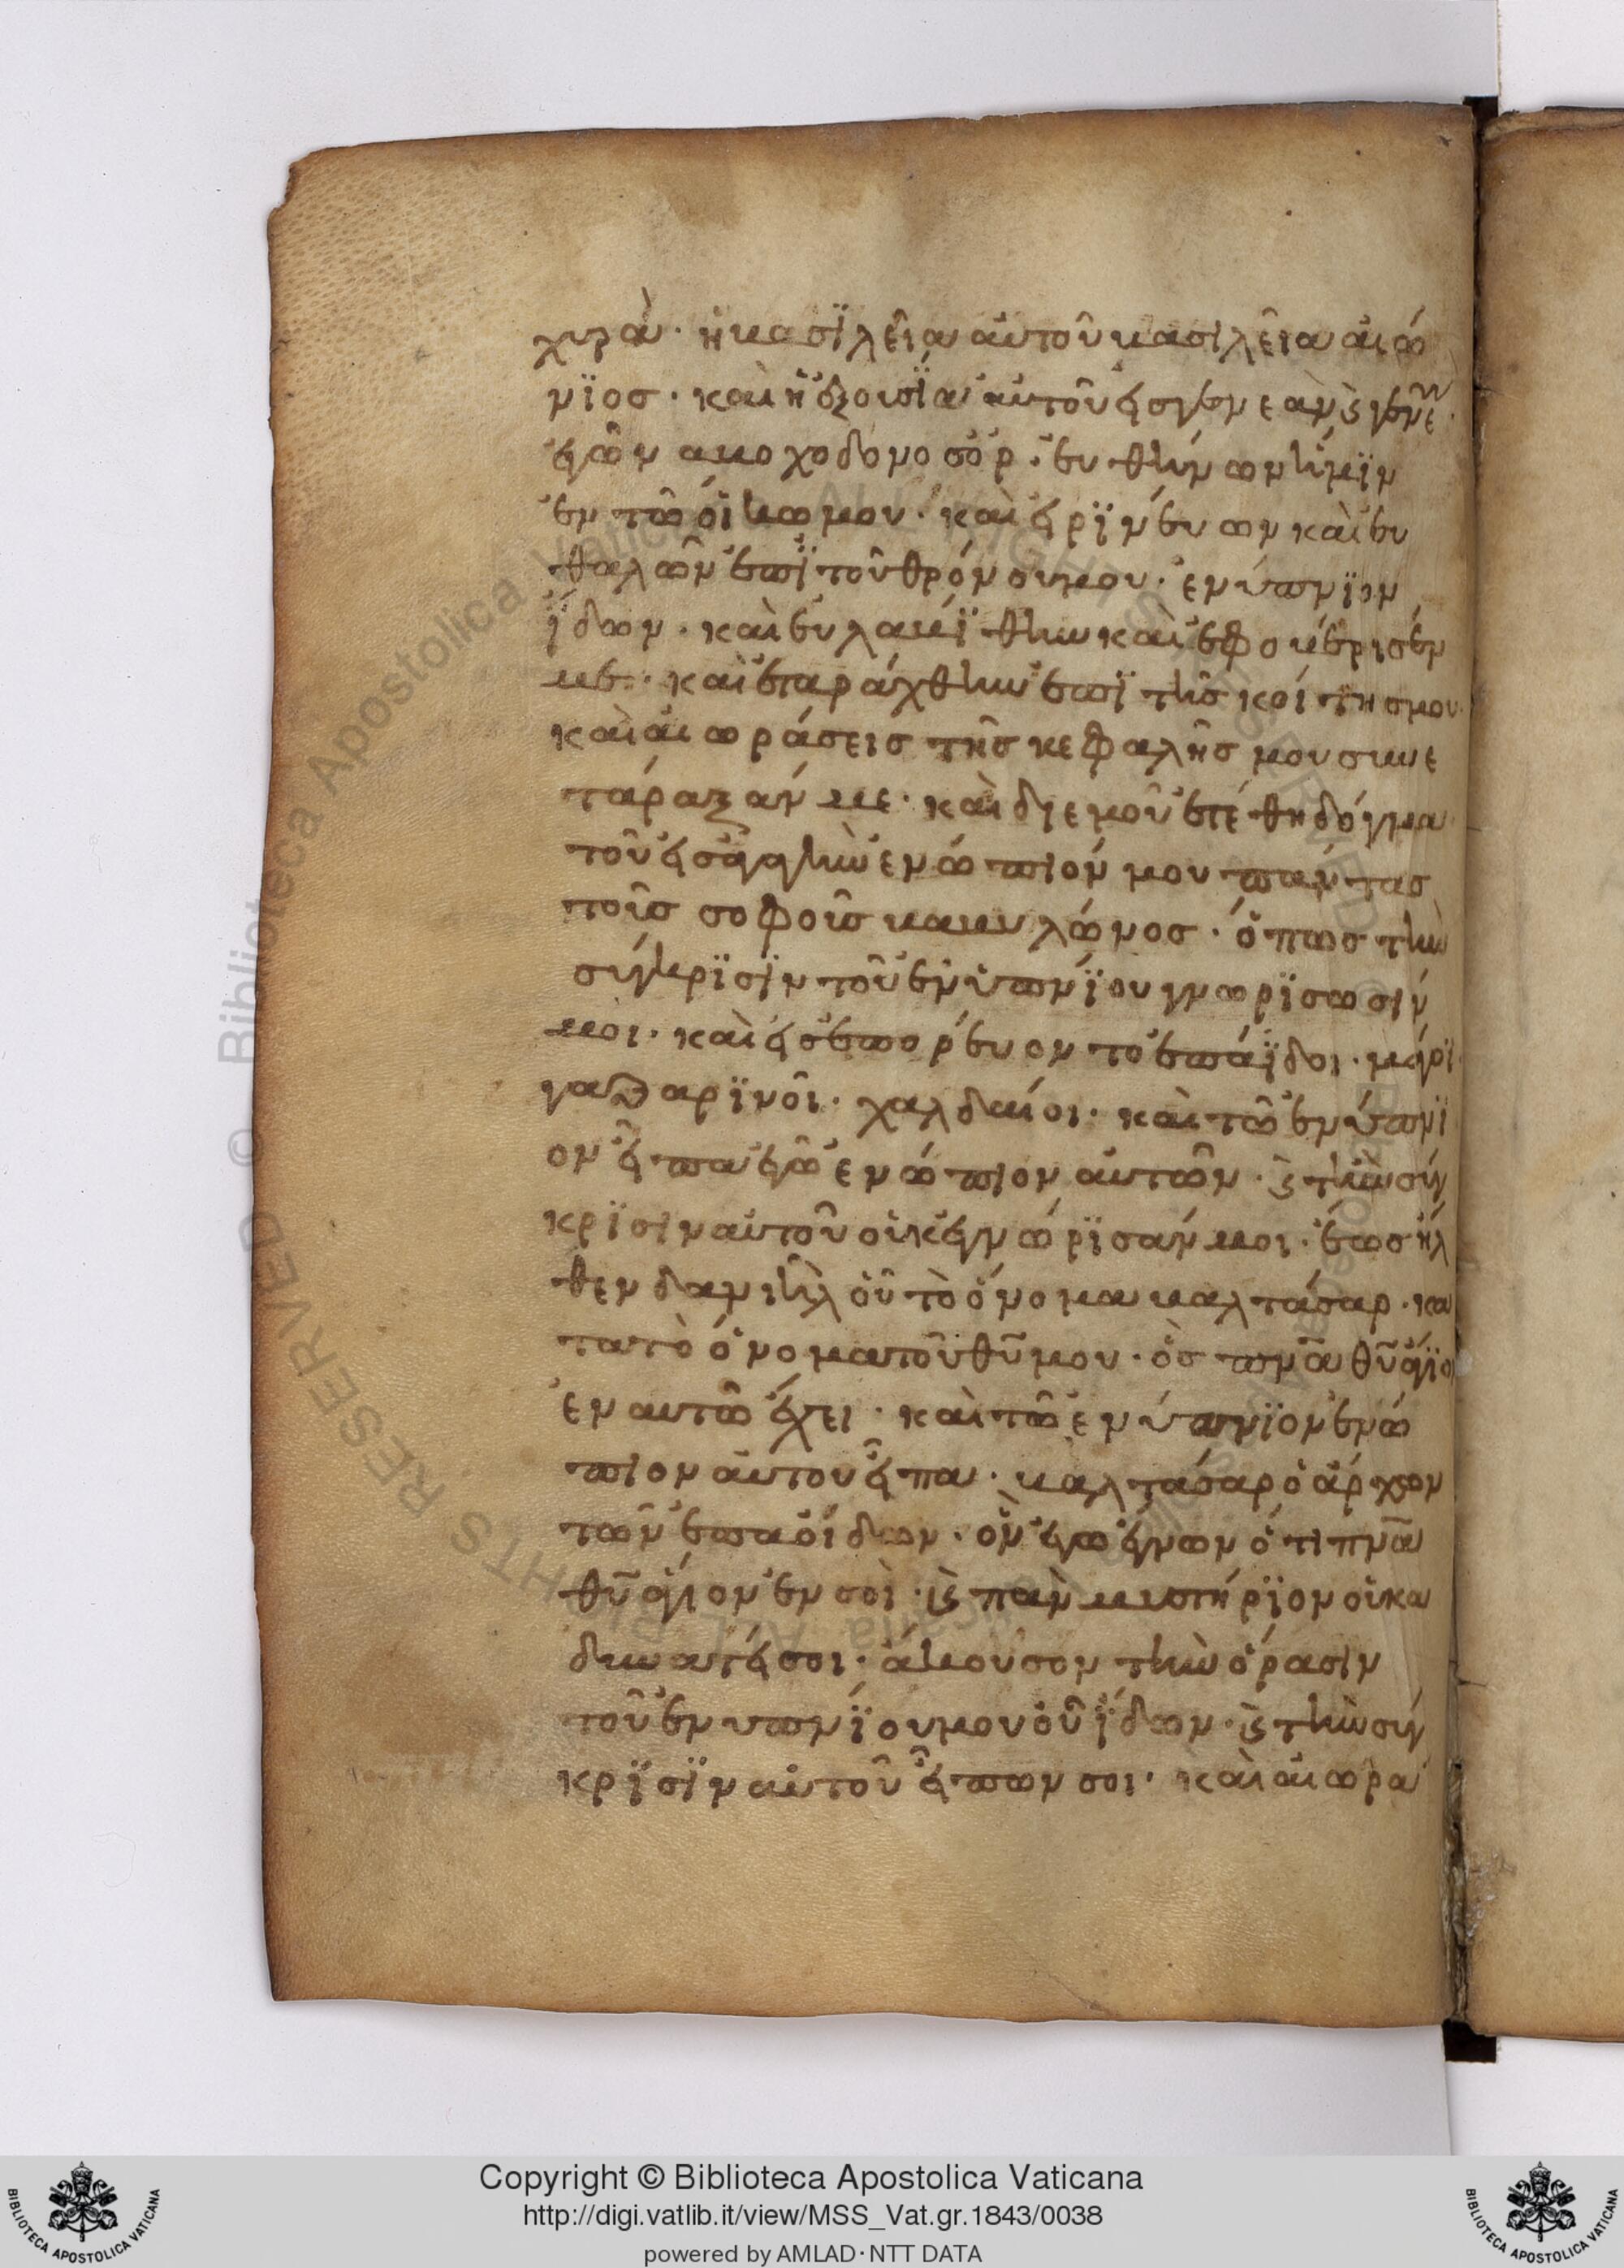 χυρὰ· ἡ βασϊλεῖα αὐτοῦ βασιλεῖα αἰώ
νϊος· καὶ ἡ ἐξουσϊα αὐτοῦ εἰσ γενεὰν ϗ γενεάν·
ἐγὼ ναβοχοδονοσόρ· εὐθήνων ἤμϊν
ἐν τῶ οἴκω μου· καὶ εἰρϊνεύων καὶ εὐ
θαλῶν ἐπϊ τοῦ θρόνου μου· ἐνύπνϊον
ΐδων· καὶ εὐλαβΐθην καὶ ἐφοβέρισέν
με· καὶ ἐταράχθην ἐπϊ τῆς κοίτης μου·
καὶ αἱ ὡράσεις τῆς κεφαλῆς μου συνε
τάραξάν με· καὶ δι εμοῦ ἐτέθη δόγμα
τοῦ εἰσαγαγῆν ενώπιόν μου πάντας
τοῖς σοφοῖς βαβυλώνος· ὅπως τὴν
σύγκρϊσϊν τοῦ ἐνυπνΐου γνωρϊσωσίν
μοι· καὶ εἰσεπορεύοντο ἐπάϊδοι· μάγοι·
γαζαρϊνοῖ· χαλδαίοι· καὶ τῶ ἐνύπνϊ
ον εἶπα ἐγῶ ενώπιον αὐτῶν· ϗ τὴν σύγ
κρϊσιν αὐτοῦ οὐκ ἐγνώρϊσάν μοι· ἕως ἦλ
θεν δανιὴλ οὗ τὸ ὄνομα βαλτάσαρ· κα
τα τὸ ὄνομα τοῦ θῦ μου· ὃς πνᾶ θῦ ἅγϊον
ἐν αυτῶ ἔχει· καὶ τῶ ἐνύπνϊον ἐνώ
πιον αὐτοῦ εἶπα· βαλτάσαρ ὁ ἄρχον
τῶν ἐπαοίδων· ὃν ἐγὼ ἔγνων ὅτι πνᾶ
θῦ ἅγιον ἐν σοὶ· ϗ πᾶν μυστήρϊον οὐκ α
δυνατεῖ σοι· ἄκουσον τὴν ὅρασιν
τοῦ ἐνυπνΐου μου οὗ ΐδων· ϗ τὴν σύγ
κρϊσϊν αὐτοῦ εἶπων σοι· καὶ αἱ ὡρα
Copyright © Biblioteca Apostolica Vaticana
http://digi.vatlib.it/view/MSS_Vat.gr.1843/0038
powered by AMLAD·NTT DATA